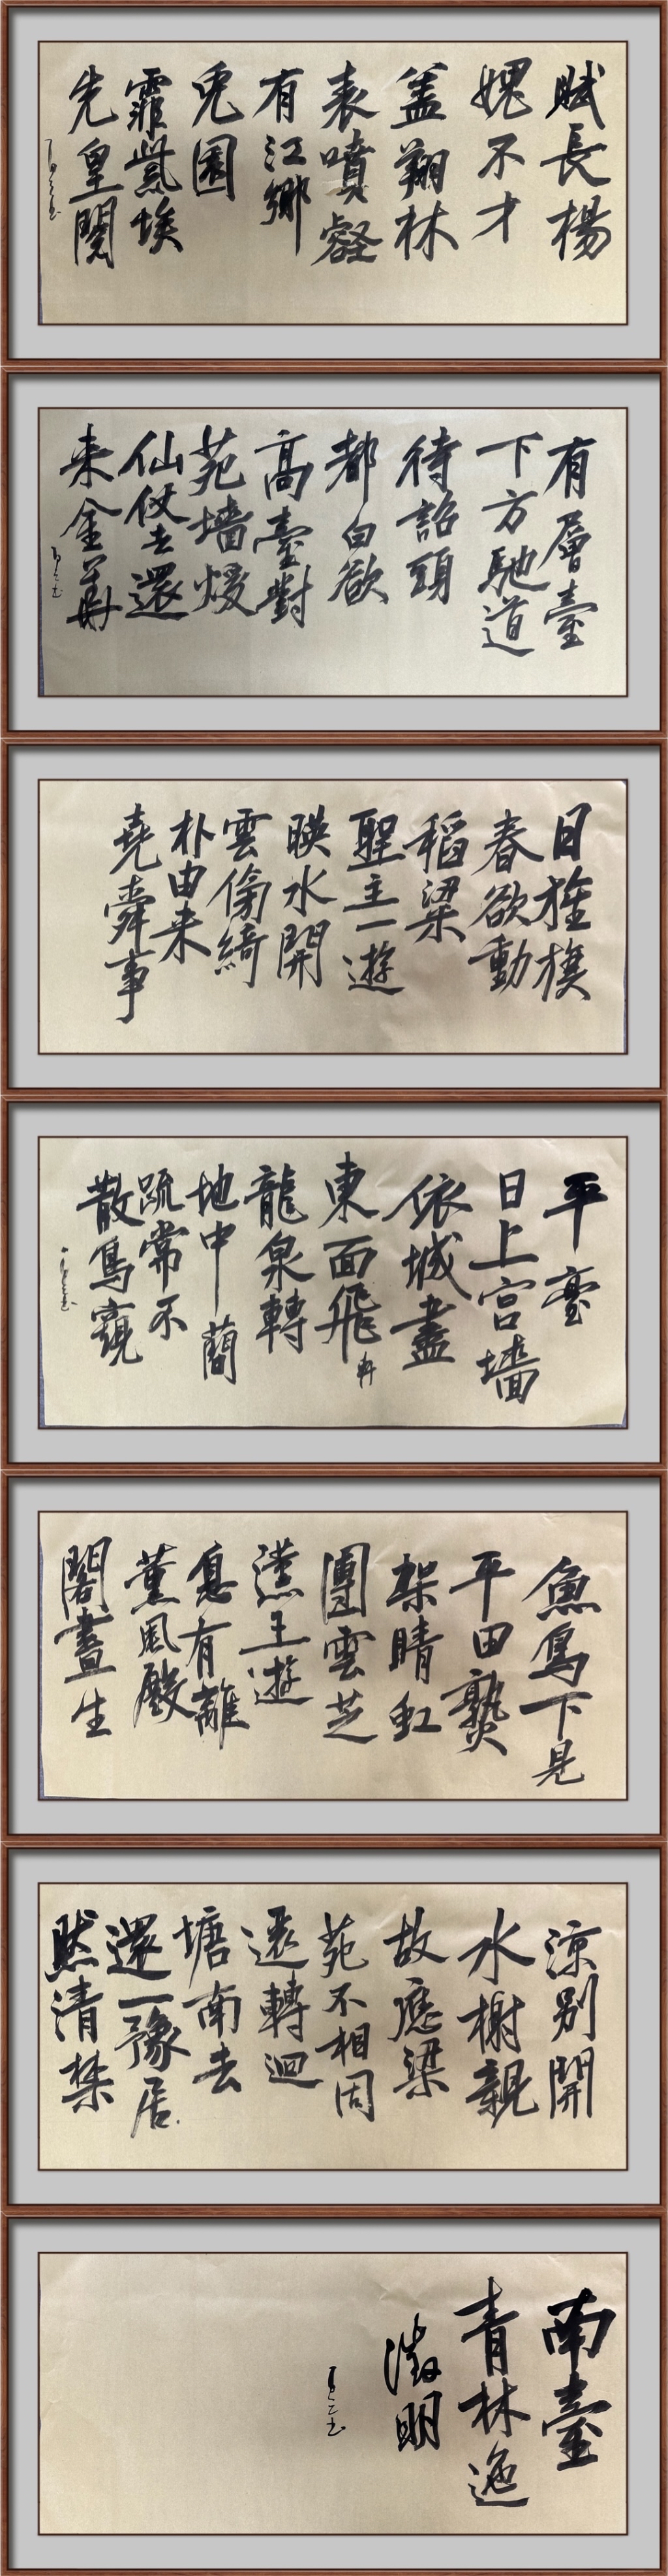 賦長楊
媿不才
盖翔林
表噴壑
有江鄉
兎園
霏紫埃
先皇閱
有層臺
下方馳道
待詔頭
都白欲
高臺對
苑墻煖
仙仗去還
来金爵
日旌旗
春欲動
稻梁
聖主一遊
暎水開
雲傍綺
朴由来
堯舜事
平臺
日上宮墻
依城盡
東面飛
龍泉轉
地中蘭
疏常不
散鳥窺
魚鳥下是
平田爇
架晴虹
團雲芝
漢王遊
息有離
薰風殿
閣晝生
涼別開
水榭親
故應梁
苑不相因
還轉迴
塘南去
還一豫居
然清禁
南臺
青林迤
徵明